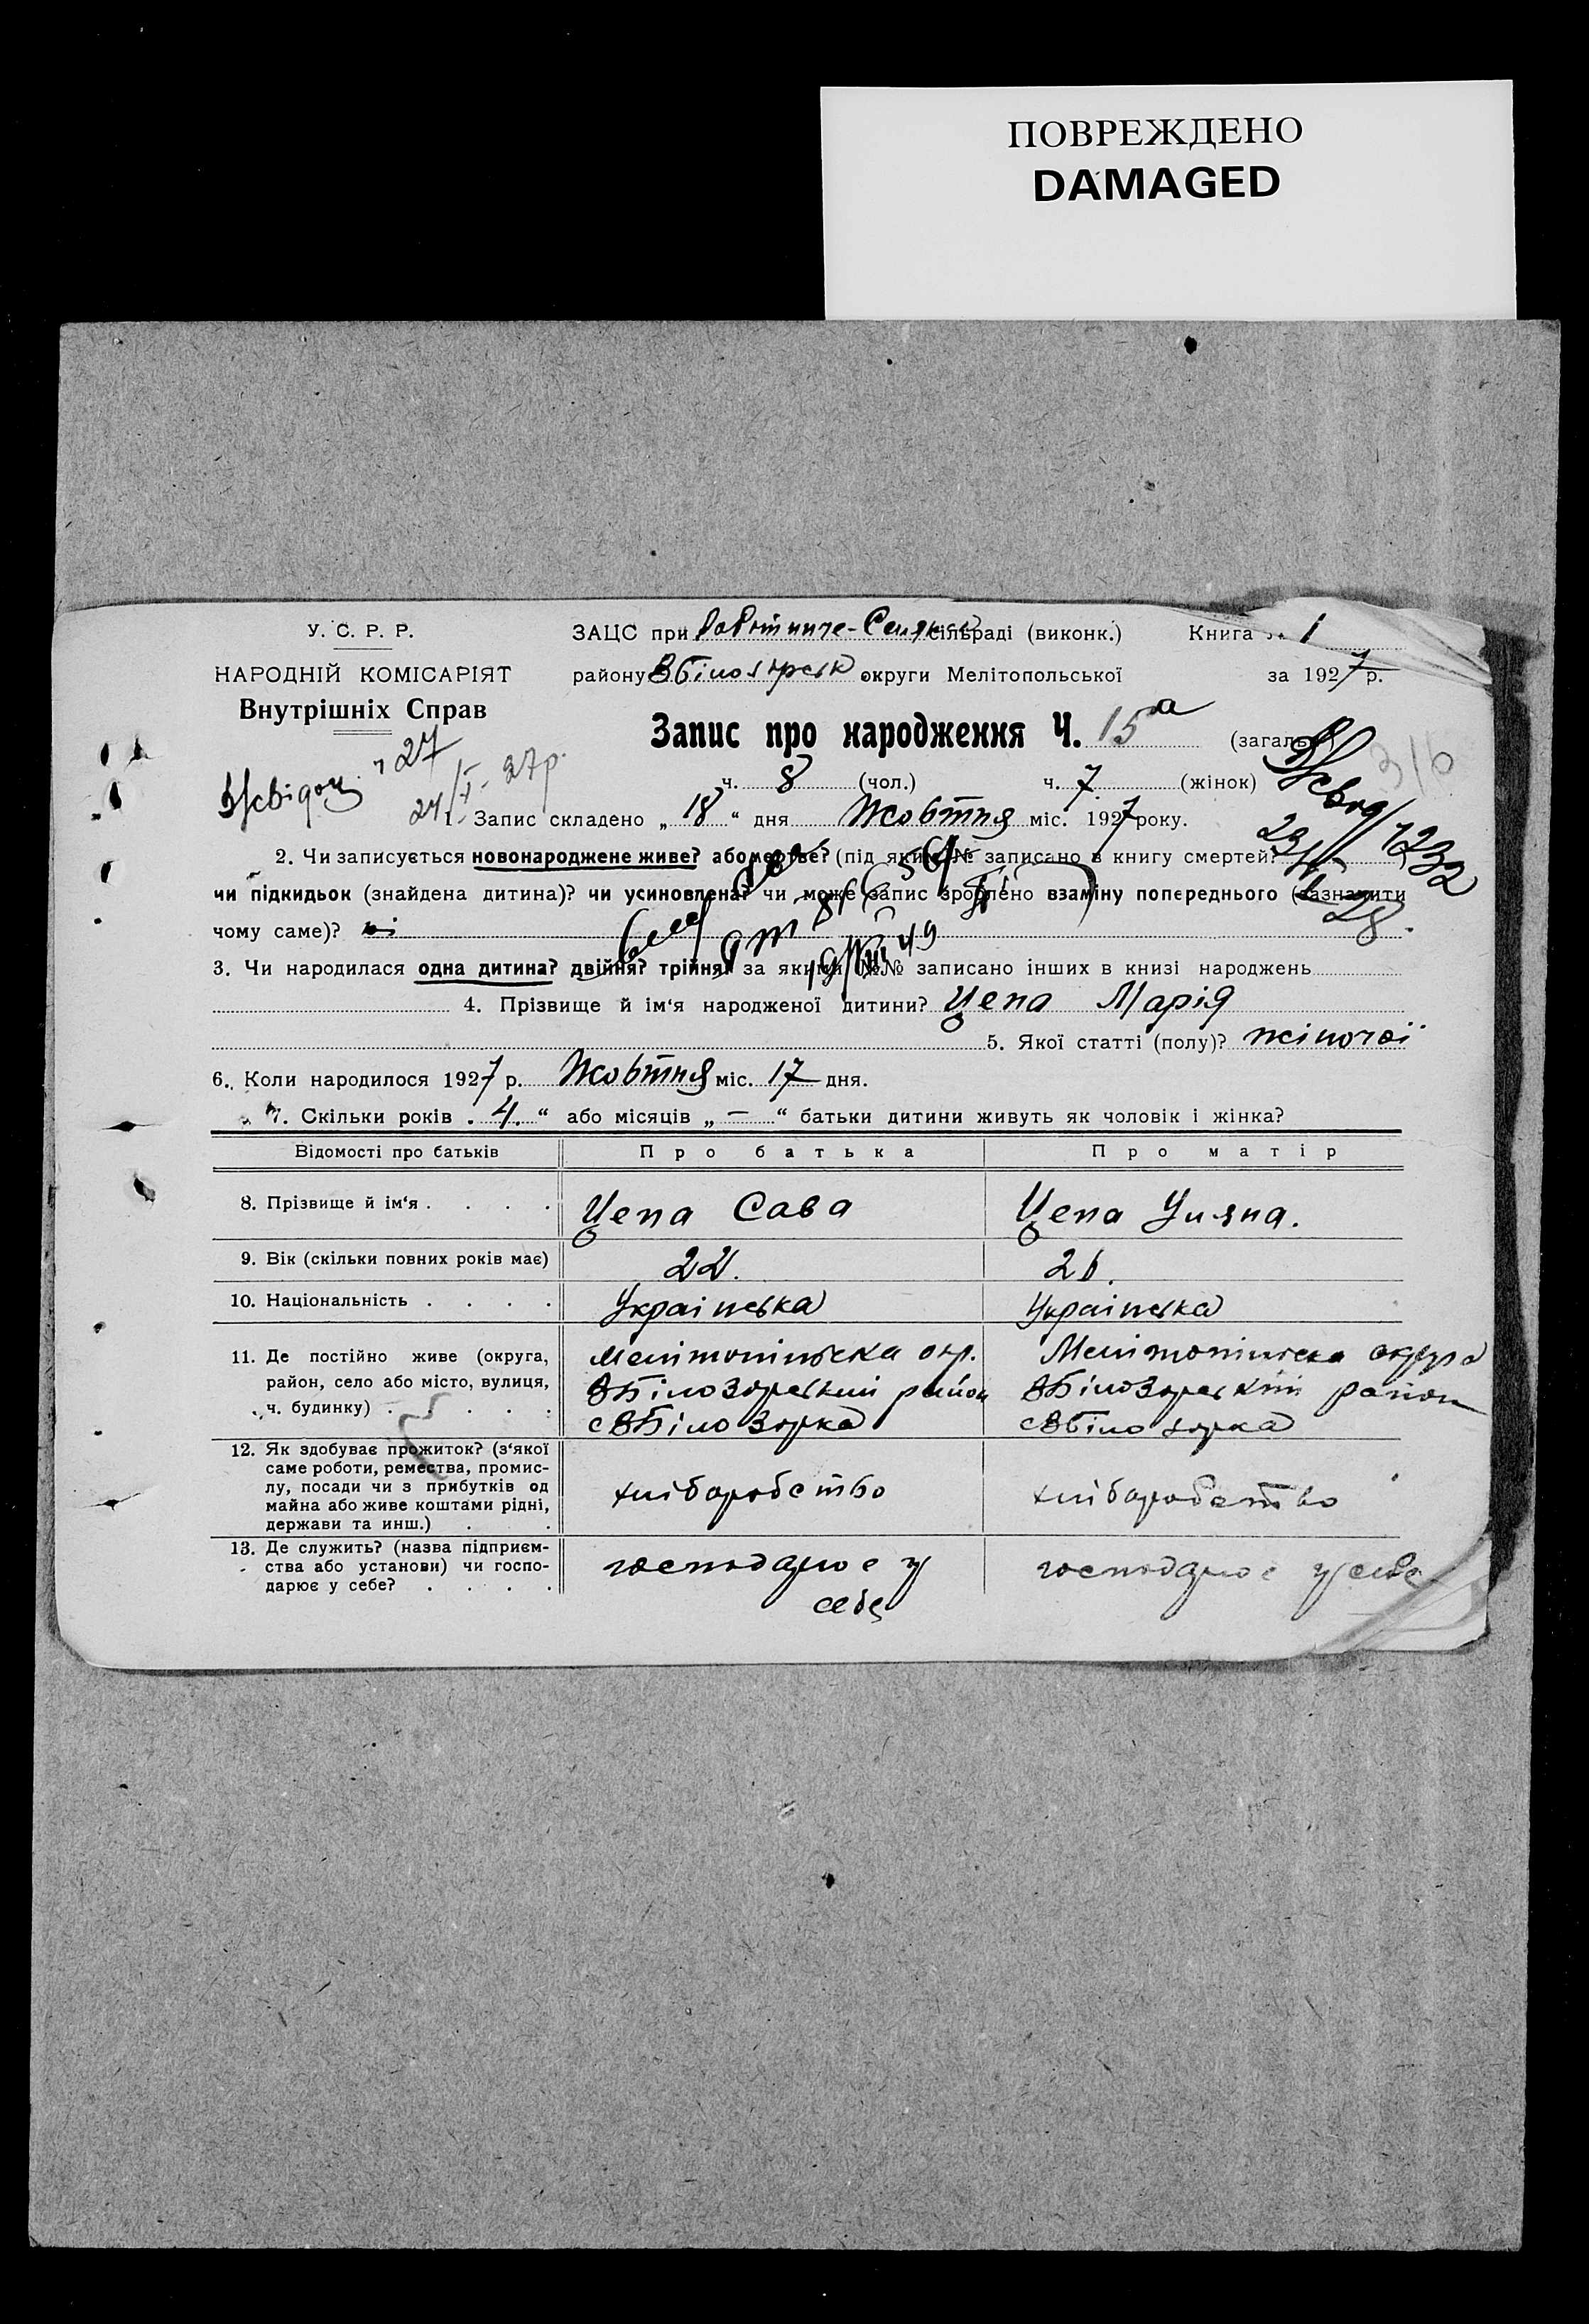 ПОВРЕЖДЕНО
DAMAGED
У. С. Р. Р.
НАРОДНІЙ КОМІСАРІЯТ
Внутрішніх Справ
ЗАЦС при сільраді (виконк.) Книга № 1
району ВБілозірськ округи Мелітопольської за 1927 р.
Запис про народження Ч. 15а (загальн.)
316
ч. 8 (чол.) ч. 7 (жінок)
1. Запис складено „ 18 “ дня Жовтня міс. 1927 року.
2. Чи записується новонароджене живе? або мертве? (під яким № записано в книгу смертей?
чи підкидьок (знайдена дитина)? чи усиновлена? чи може запис зроблено взаміну попереднього (зазначити
чому саме)?
3. Чи народилася одна дитина? двійня? трійня? за якими №№ записано інших в книзі народжень
4. Прізвище й ім‘я народженої дитини? Цепа Марія
5. Якої статті (полу)? жіночої
6. Коли народилося 1927 р. Жовтня міс. 17 дня.
7. Скільки років „ 4 “ або місяців „ — “ батьки дитини живуть як чоловік і жінка?
Відомості про батьків Про батька Про матір
8. Прізвище й ім‘я . . . . Цепа Сава Цепа Уляна.
9. Вік (скільки повних років має) 22. 21.
10. Національність . . . . Українська Українська
11. Де постійно живе (округа, Мелітопільська окр. Мелітопільска округа
район, село або місто, вулиця, ВБілозорський район ВБілозорський район
ч. будинку) . . . . . сВБілозорка сВБілозорка
12. Як здобуває прожиток? (з‘якої
саме роботи, ремества, промис-
лу, посади чи з прибутків од хліборобство хліборобство
майна або живе коштами рідні,
держави та инш.) . .
13. Де служить? (назва підприєм-
ства або установи) чи госпо- господарює у господарює у себе
дарює у себе? . . . . себе